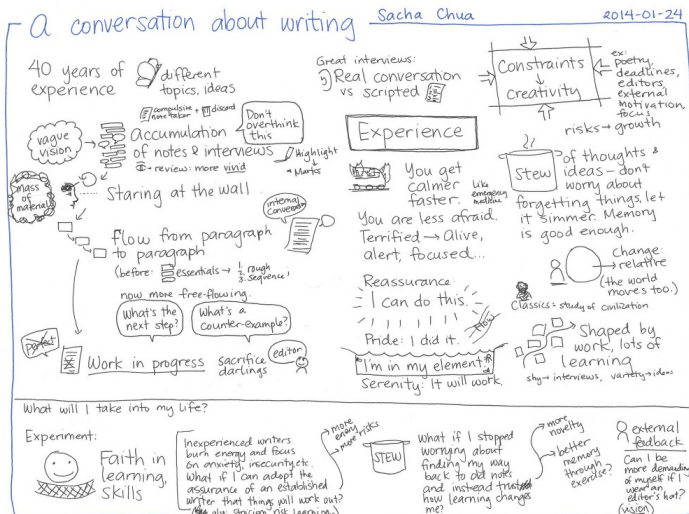 A conversation about writing
Sacha Chua
2014-01-24
40 years of
experience
different
topics, ideas
compulsive
note taker + discard
Don't
overthink
this
vague
vision
accumulation
of notes & interviews
→ review: more vivid
Highlight
↓
Marks
mass
of
material
Staring at the wall
internal
conversation
flow from paragraph
to paragraph
(before: essentials → 1. rough
2. sequence)
3.
now more free-flowing
What's the
next step?
What's a
counter-example?
perfect
Work in progress
sacrifice
darlings
editor
Great interviews:
Real conversation
vs scripted
Experience
You get
calmer
faster.
Like
emergency
medicine
You are less afraid.
Terrified → Alive,
alert, focused...
Reassurance:
I can do this.
Pride: I did it.
Flow
I'm in my element.
Serenity: It will work.
Constraints
↓
creativity
ex:
poetry,
deadlines,
editors,
external
motivation,
focus
risks → growth
STEW
of thoughts &
ideas – don't
worry about
forgetting things, let
it simmer. Memory
is good enough.
Change:
relative
(the world
moves too.)
Classics = study of civilization
Shaped by
work, lots of
learning
shy → interviews, variety → ideas
What will I take into my life?
Experiment:
Faith in
learning,
skills
Inexperienced writers
burn energy and focus
on anxiety, insecurity, etc.
What if I can adopt the
assurance of an established
writer that things will work out?
stoicism, risk, learning...)
→ more
energy
→ more risks
STEW
What if I stopped
worrying about
finding my way
back to old notes
and instead trusted
how learning changes
me?
→ more
novelty
→ better
memory
through
exercise?
external
feedback
Can I be
more demanding
of myself if I
wear an
editor's hat?
(vision)